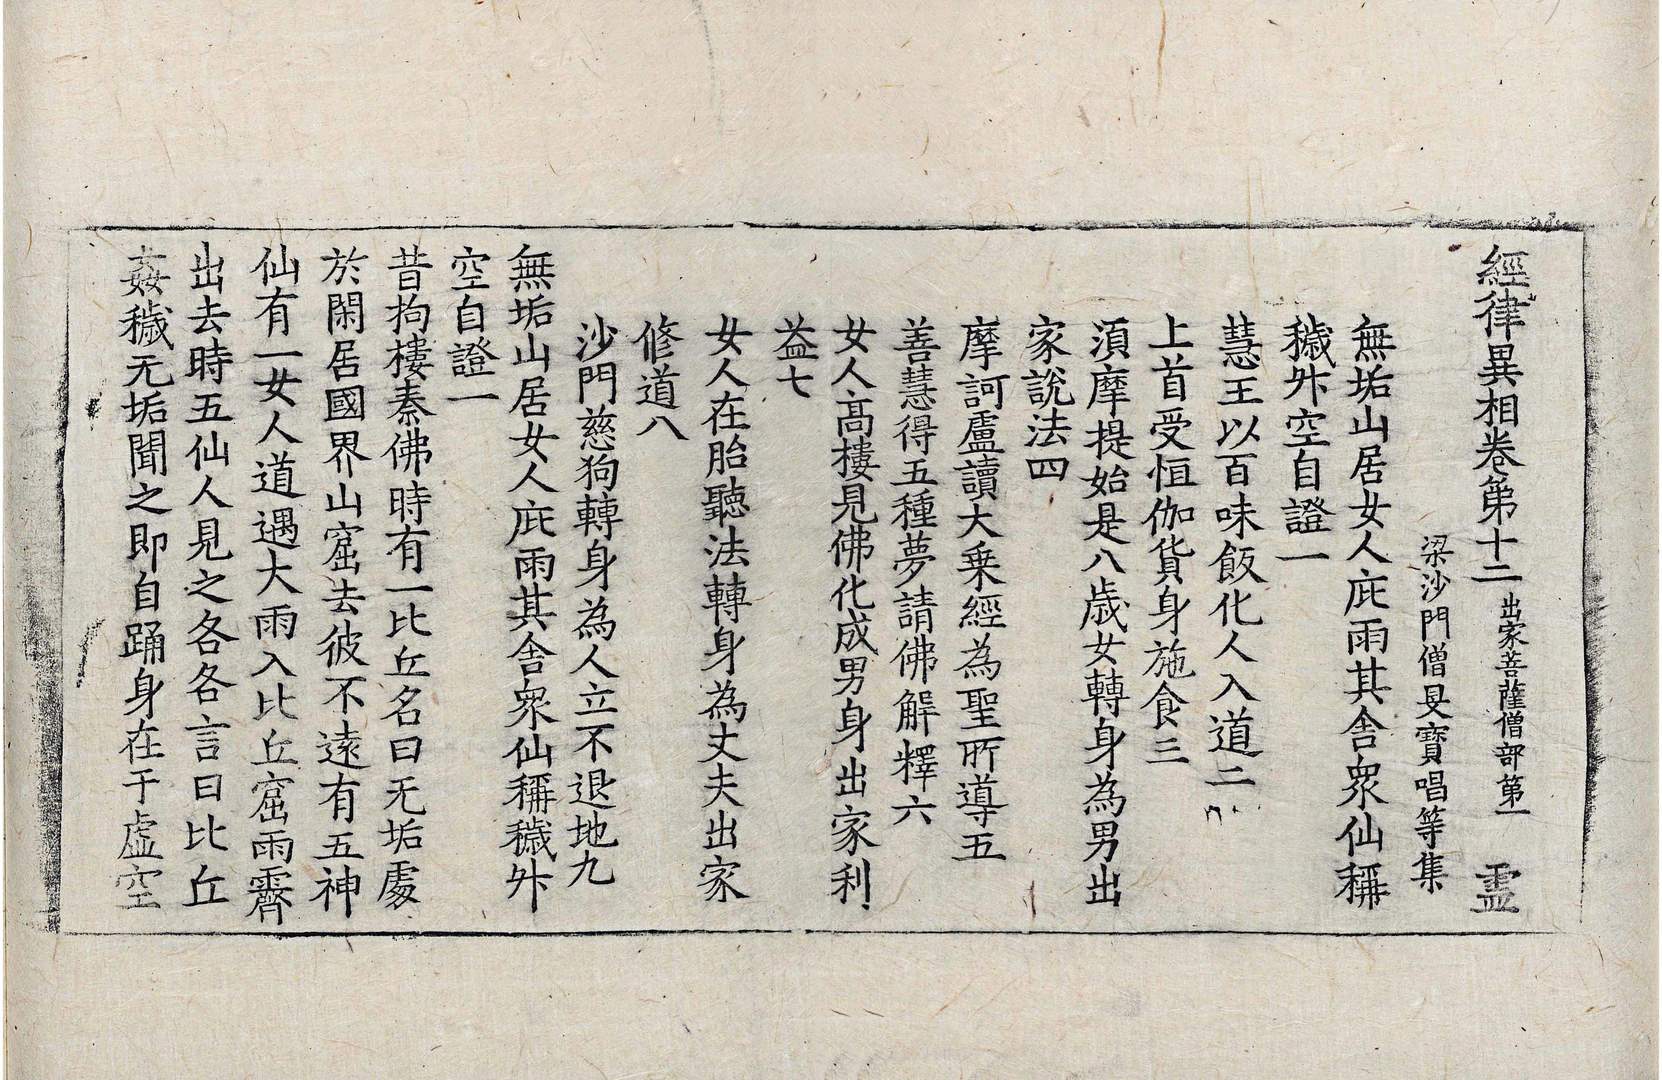 經律異相卷第十二 出家菩薩僧部第一 霊
梁沙門僧旻寶唱等集
無垢山居女人庇雨其舎衆仙稱
穢外空自證一
慧王以百味飯化人入道二
上首受恒伽貨身施食三
須摩提始是八歳女轉身為男出
家說法四
摩訶盧讀大乗經為聖所導五
善慧得五種夢請佛解釋六
女人高樓見佛化成男身出家利
益七
女人在胎聽法轉身為丈夫出家
修道八
沙門慈狗轉身為人立不退地九
無垢山居女人庇雨其舎衆仙稱穢外
空自證一
昔拘樓秦佛時有一比丘名曰无垢處
於閑居國界山窟去彼不遠有五神
仙有一女人道遇大雨入比丘窟雨霽
出去時五仙人見之各各言曰比丘
姦穢无垢聞之即自踊身在于虛空